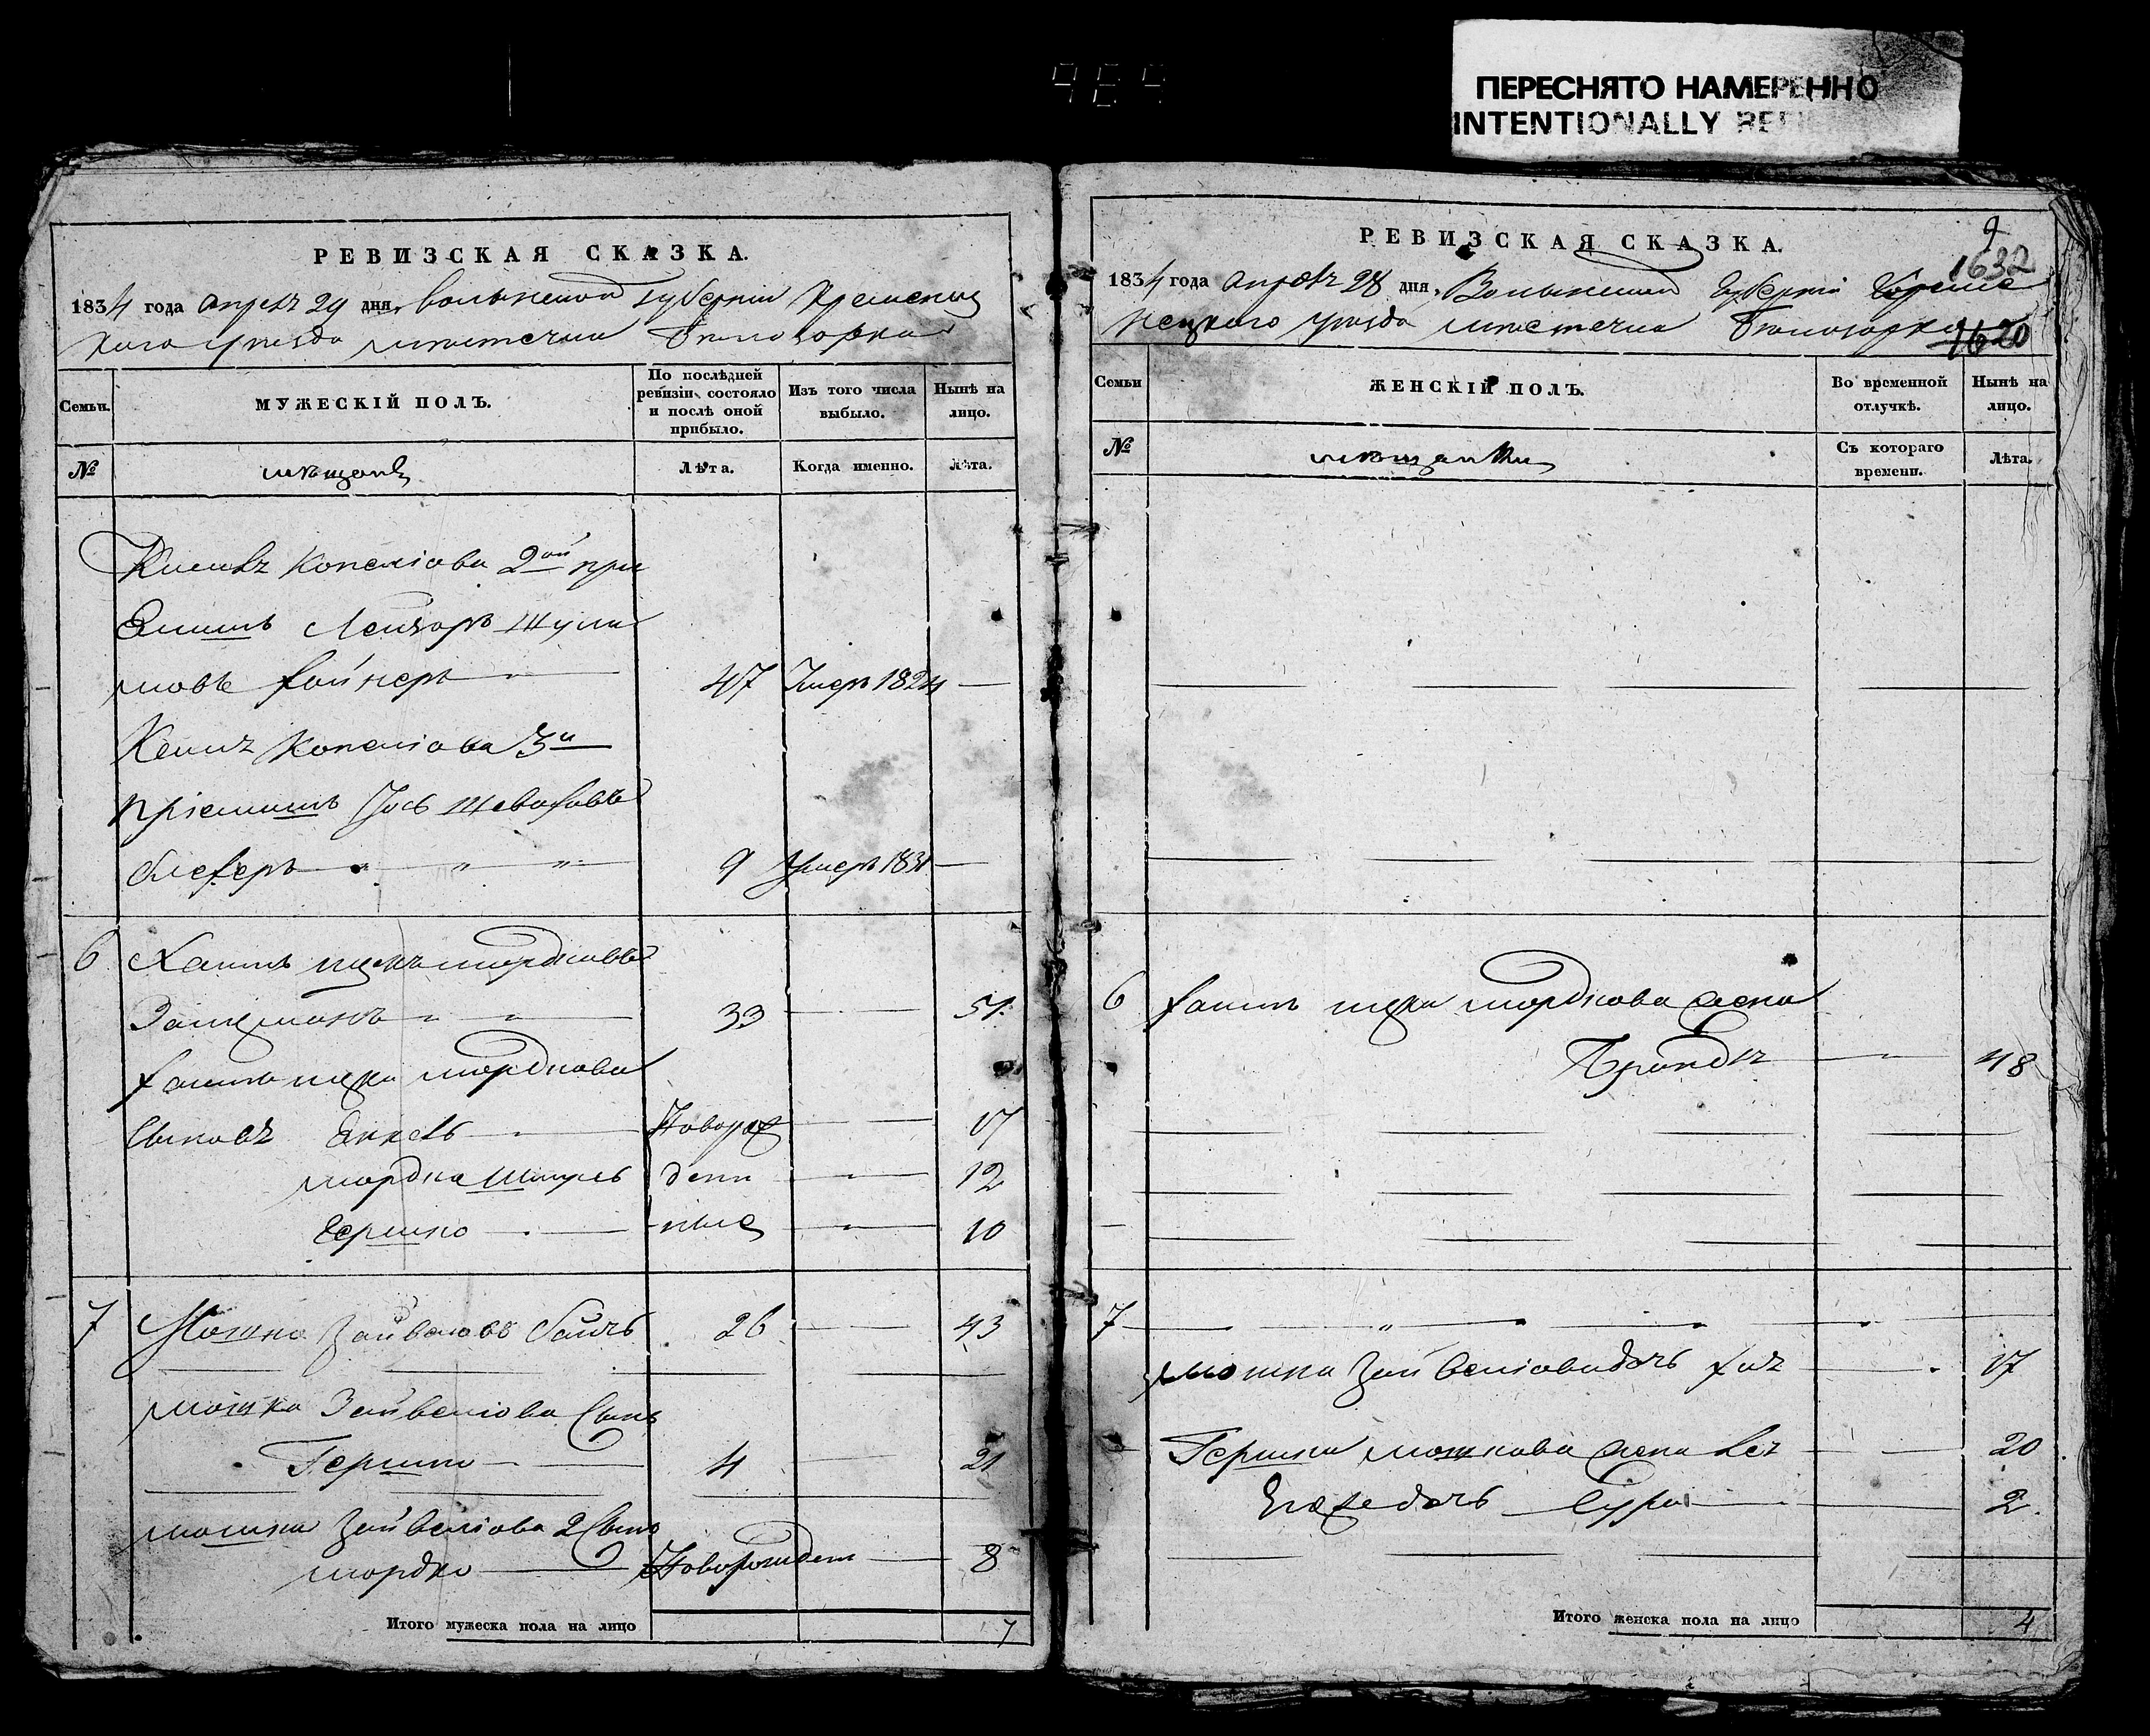 ПЕРЕСНЯТО НАМЕРЕННО
INTENTIONALLY
РЕВИЗСКАЯ СКАЗКА.
1834 года апреля 29 дня, Волынской Губернии Кременец
каго уезда местечка Белозорка
Семьи.
МУЖЕСКІЙ ПОЛЪ.
По послѣдней ревизіи состояло и послѣ оной прибыло.
Изъ того числа выбыло.
Нынѣ на лицо.
№
мещане
Лѣта.
Когда именно.
Лѣта.
Копелiова 2ой при
Емышъ Лейзоръ Шули
мовъ 47 Умеръ 1824
Копелiова 3й
Пріемышъ Іось
9 Умеръ 1831
6 Хаимъ Ицекъ Мордковъ
33 51
Хаимъ Ицка Мордкова
Сыновя Янкель Новорож 17
Мордко Шмуль ден 12
Гершко ные 10
7 Мошко Зайвеловъ 26 43
Мошка Зайвелiова Сынъ
Гершко 4 21
Мошка Зайвелiова 2 Сынъ
Мордко Новорожден 8
Итого мужеска пола на лицо 7
РЕВИЗСКАЯ СКАЗКА.
9
1632
1834 года апреля 28 дня, Волынской Губернiи Креме
нецкого уезда местечка Белозорка
1620
Семьи
ЖЕНСКІЙ ПОЛЪ.
Во временной отлучкѣ.
Нынѣ на лицо.
№
мещанки
Съ котораго времени.
Лѣта.
6 Хаимъ Ицка Мордкова жена
48
7
Мошка Зайвелiова дочь Хая 17
Гершка Мошкова жена 20
Егоже дочь Сура 2
Итого женска пола на лицо 4